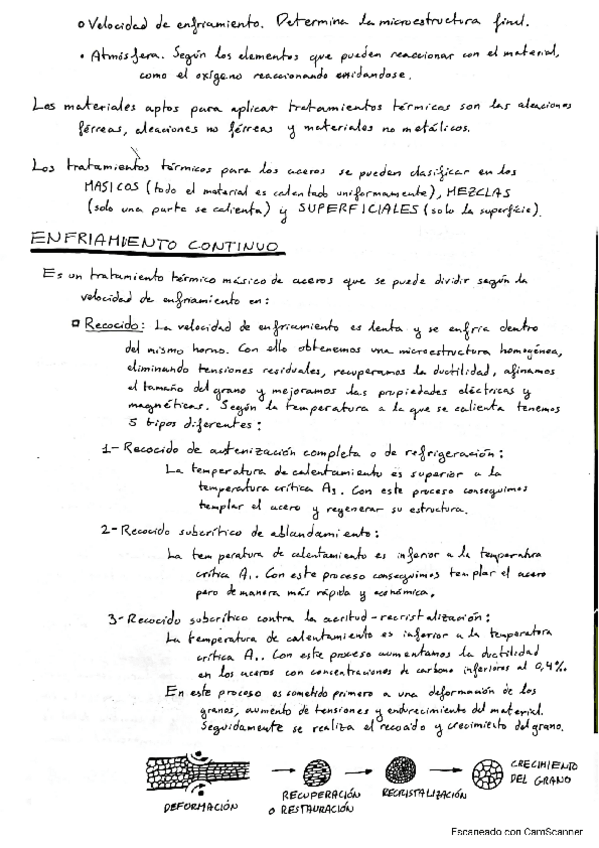 o Velocidad de enfriamiento. Determina la microestructura final.
• Atmósfera. Según los elementos que pueden reaccionar con el material,
como el oxígeno reaccionando oxidandose.
Los materiales aptos para aplicar tratamientos térmicos son las aleaciones
férreas, aleaciones no férreas y materiales no metálicos.
Los tratamientos térmicos para los aceros se pueden clasificar en los
MASICOS (todo el material es calentado uniformemente), MEZCLAS
(solo una parte se calienta) y SUPERFICIALES (solo la superficie).
ENFRIAMIENTO CONTINUO
Es un tratamiento térmico másico de aceros que se puede dividir según la
velocidad de enfriamiento en:
Recocido: La velocidad de enfriamiento es lenta y se enfría dentro
del mismo horno. Con ello obtenemos una microestructura homogénea,
eliminando tensiones residuales, recuperamos la ductilidad, afinamos
el tamaño del grano y mejoramos las propiedades eléctricas y
magnéticas. Según la temperatura a la que se calienta tenemos
5 tipos diferentes:
1- Recocido de autenización completa o de refrigeración:
La temperatura de calentamiento es superior a la
temperatura crítica A3. Con este proceso conseguimos
templar el acero y regenerar su estructura.
2- Recocido subcrítico de ablandamiento:
La temperatura de calentamiento es inferior a la temperatura
crítica A1. Con este proceso conseguimos templar el acero
pero de manera más rápida y económica.
3- Recocido subcrítico contra la acritud-recristalización:
La temperatura de calentamiento es inferior a la temperatura
crítica A1. Con este proceso aumentamos la ductilidad
en los aceros con concentraciones de carbono inferiores al 0,4%.
En este proceso es sometido primero a una deformación de los
granos, aumento de tensiones y endurecimiento del material.
Seguidamente se realiza el recocido y crecimiento del grano.
DEFORMACIÓN
RECUPERACIÓN
o RESTAURACIÓN
RECRISTALIZACIÓN
CRECIMIENTO
DEL GRANO
Escaneado con CamScanner